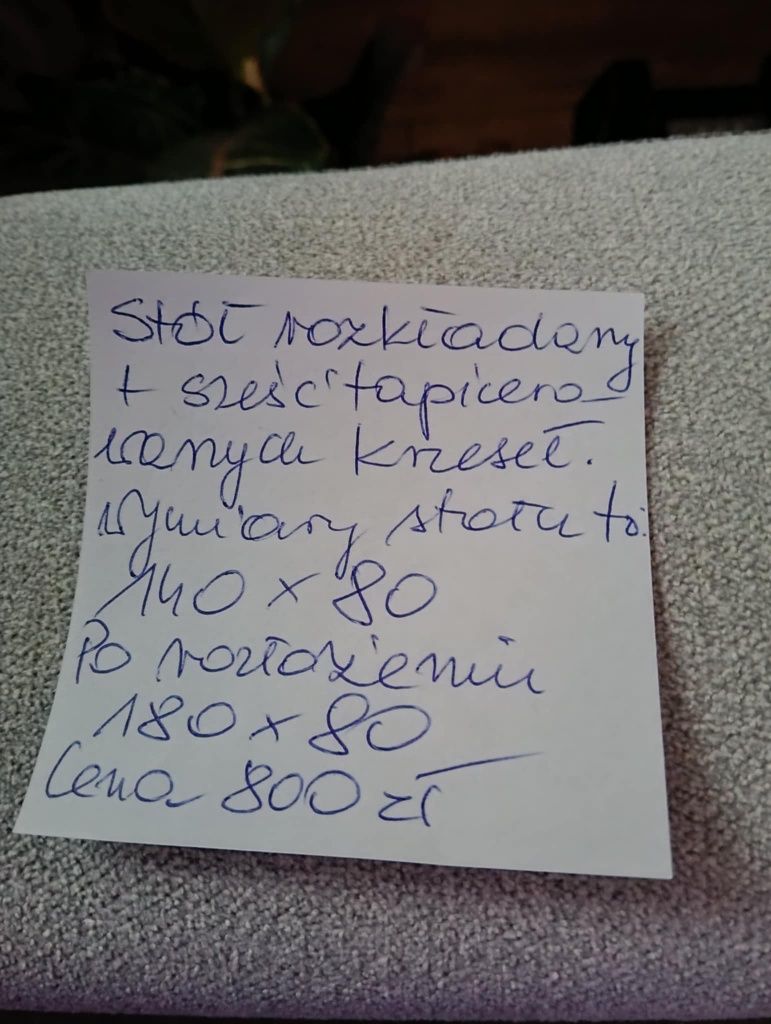 Stół rozkładany
+ sześć tapicero-
wanych krzeseł.
wymiary stołu to:
140 x 80
Po rozłożeniu
180 x 80
Cena 800 zł